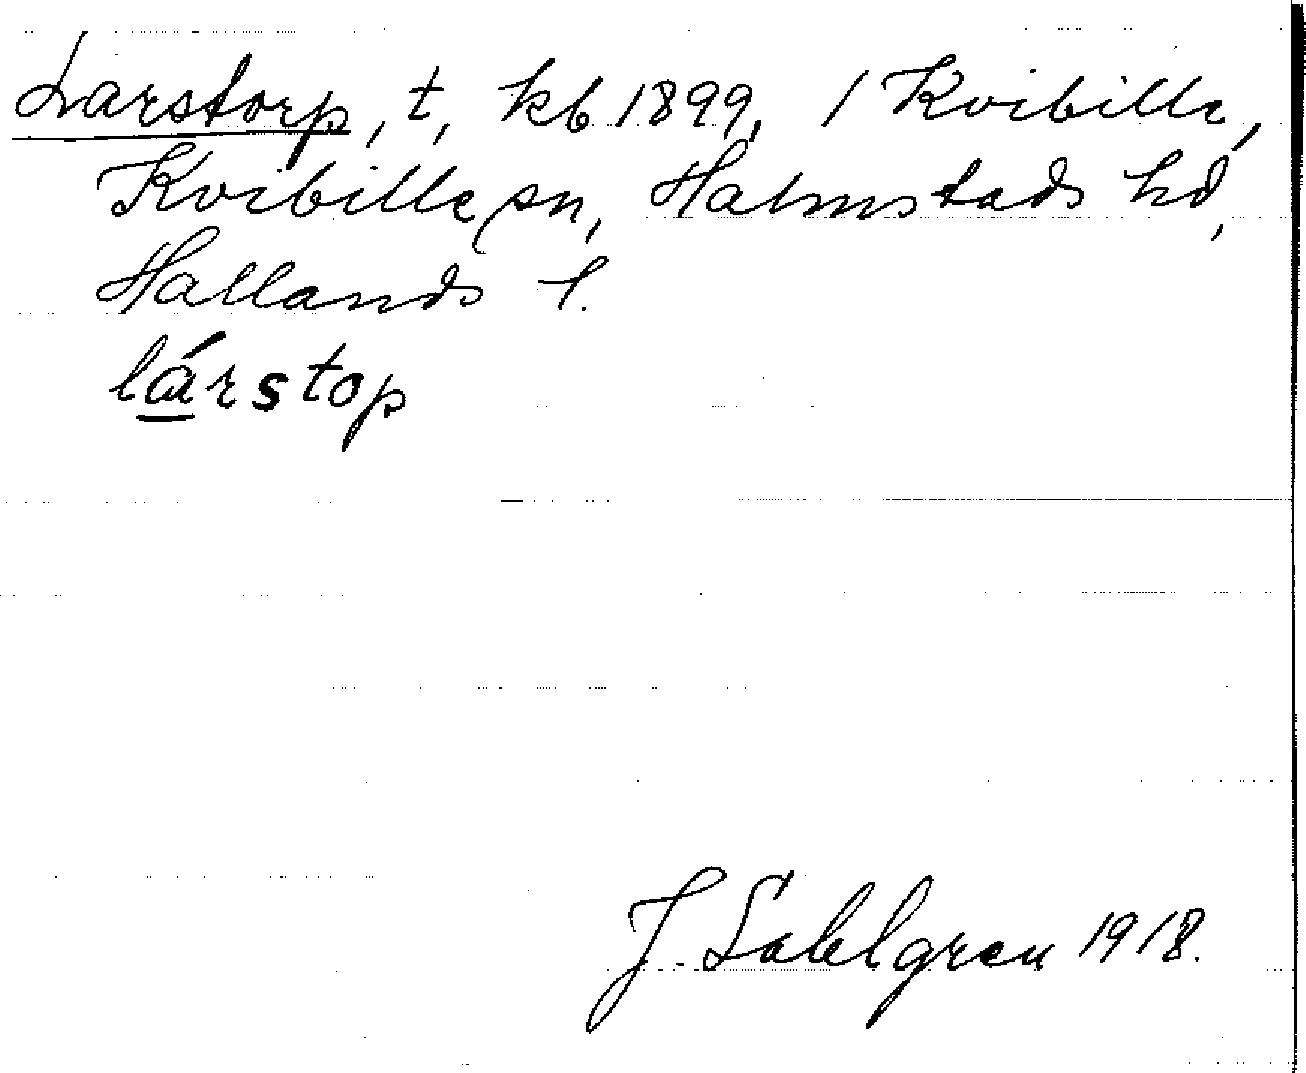 Larstorp, t, kb 1899, / Kvibille,
Kvibille sn, Halmstads hd,
Hallands l.
lárstop
J. Sahlgren 1918.